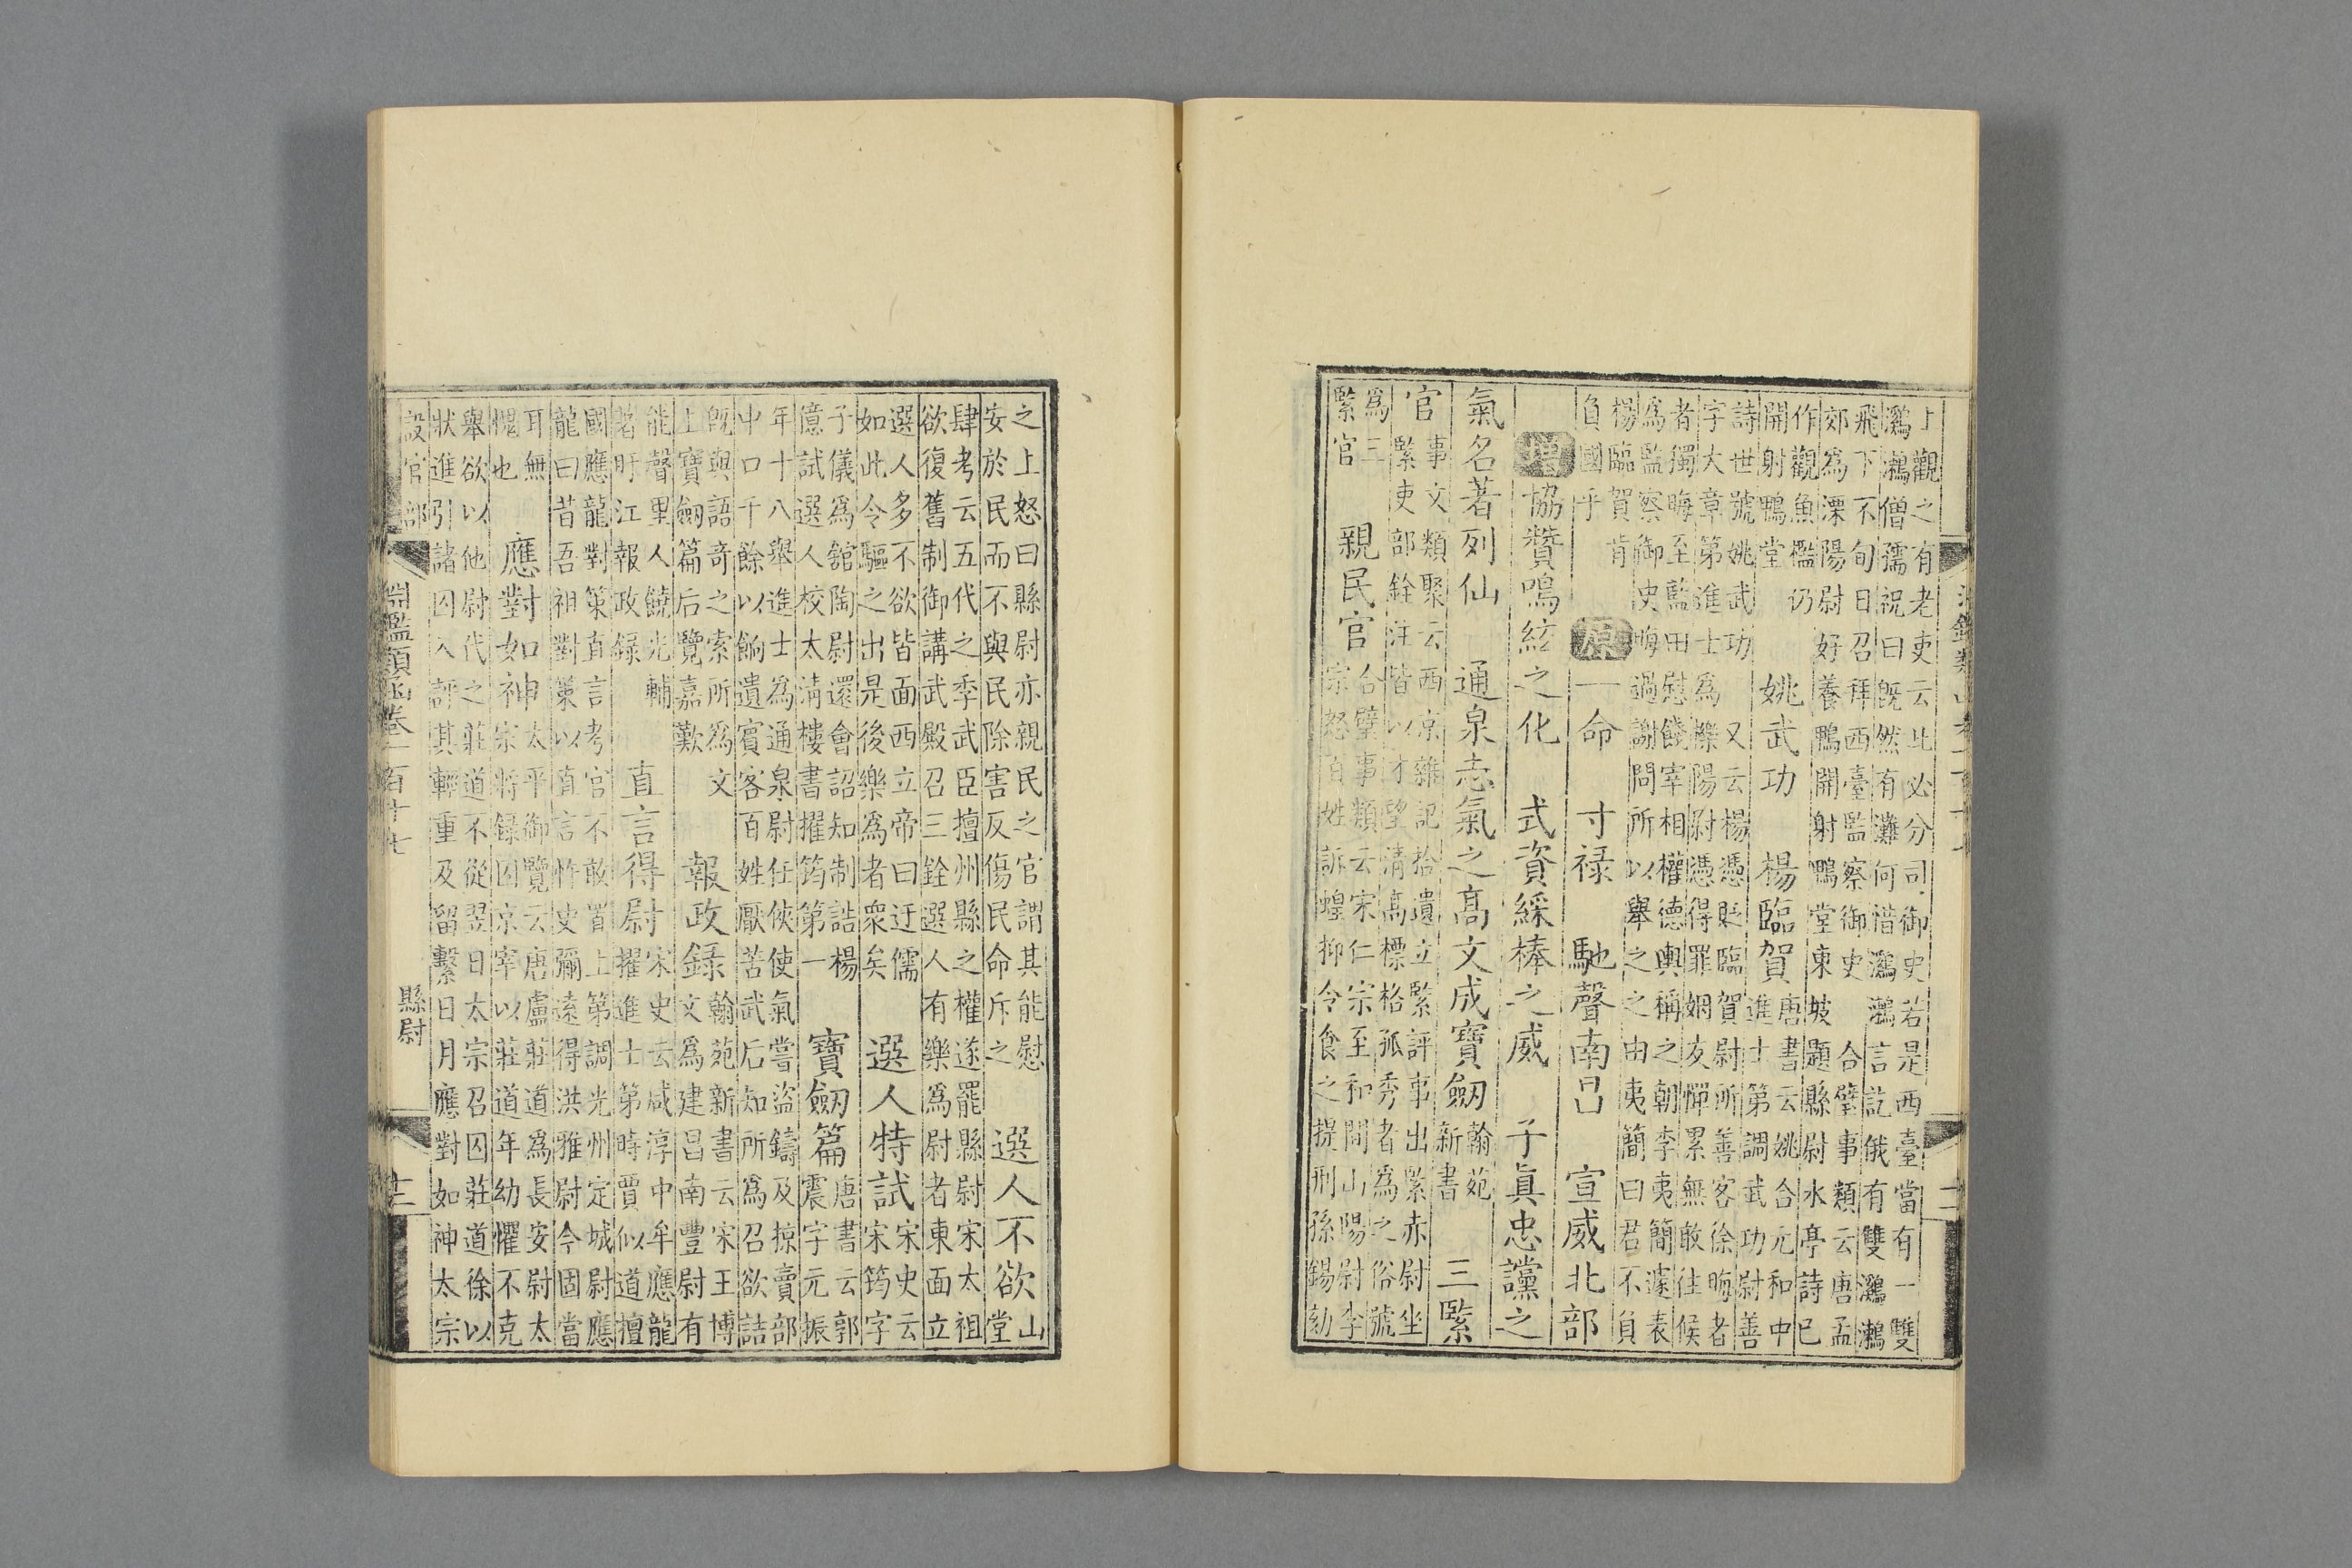 上觀之有老吏云此必分司御史若是西臺當有一雙
鸂鶒僧孺祝曰既然有灘何惜鸂鶒言訖俄有雙鸂鶒
飛下不旬日召拜西臺監察御史 合璧事類云唐孟
郊為溧陽尉好養鴨開射鴨堂東坡題縣尉水亭詩已
作觀魚檻仍
開射鴨堂
姚武功 楊臨賀
唐書云姚合元和中
進士第調武功尉善
詩世號姚武功 又云楊憑貶臨賀尉所善客徐晦者
字大章第進士為櫟陽尉憑得罪姻友憚累無敢往候
者獨晦至藍田慰餞宰相權德輿稱之朝李夷簡遽表
為監察御史晦過謝問所以舉之之由夷簡曰君不負
楊臨賀肯
負國乎
原 一命 寸祿 馳聲南昌 宣威北部
增 協贊鳴絃之化 式資綵棒之威 子真忠讜之
氣名著列仙 通泉志氣之高文成寶劒
翰苑
新書
三緊
官
事文類聚云西京雜記拾遺立緊評事出緊赤尉坐
緊吏部銓注皆以才望清高標格孤秀者為之俗號
為三
緊官
親民官
合璧事類云宋仁宗至和間山陽尉李
宗怒百姓訴蝗抑令食之提刑孫錫劾
之上怒曰縣尉亦親民之官謂其能慰
安於民而不與民除害反傷民命斥之
選人不欲
山
堂
肆考云五代之季武臣擅州縣之權遂罷縣尉宋太祖
欲復舊制御講武殿召三銓選人有樂為尉者東面立
選人多不欲皆面西立帝曰迂儒
如此令驅之出是後樂為者衆矣
選人特試
宋史云
宋筠字
子儀為舘陶尉還會詔知制誥楊
億試選人校太清樓書擢筠第一
寶劒篇
唐書云郭
震字元振
年十八舉進士為通泉尉任俠使氣嘗盜鑄及掠賣部
中口千餘以餉遺賓客百姓厭苦武后知所為召欲詰
既與語奇之索所為文
上寶劒篇后覽嘉歎
報政録
翰苑新書云宋王博
文為建昌南豐尉有
能聲里人饒光輔
著盱江報政録
直言得尉
宋史云咸淳中牟應龍
擢進士第時賈似道擅
國應龍對策直言考官不敢置上第調光州定城尉應
龍曰昔吾祖對策以直言忤史彌遠得洪雅尉今固當
耳無
愧也
應對如神
太平御覽云唐盧莊道為長安尉太
宗將録囚京宰以莊道年幼懼不克
舉欲以他尉代之莊道不從翌日太宗召囚莊道徐以
狀進引諸囚入評其輕重及留繫日月應對如神太宗
設官部
淵鑑類函卷一百十七
縣尉
十二